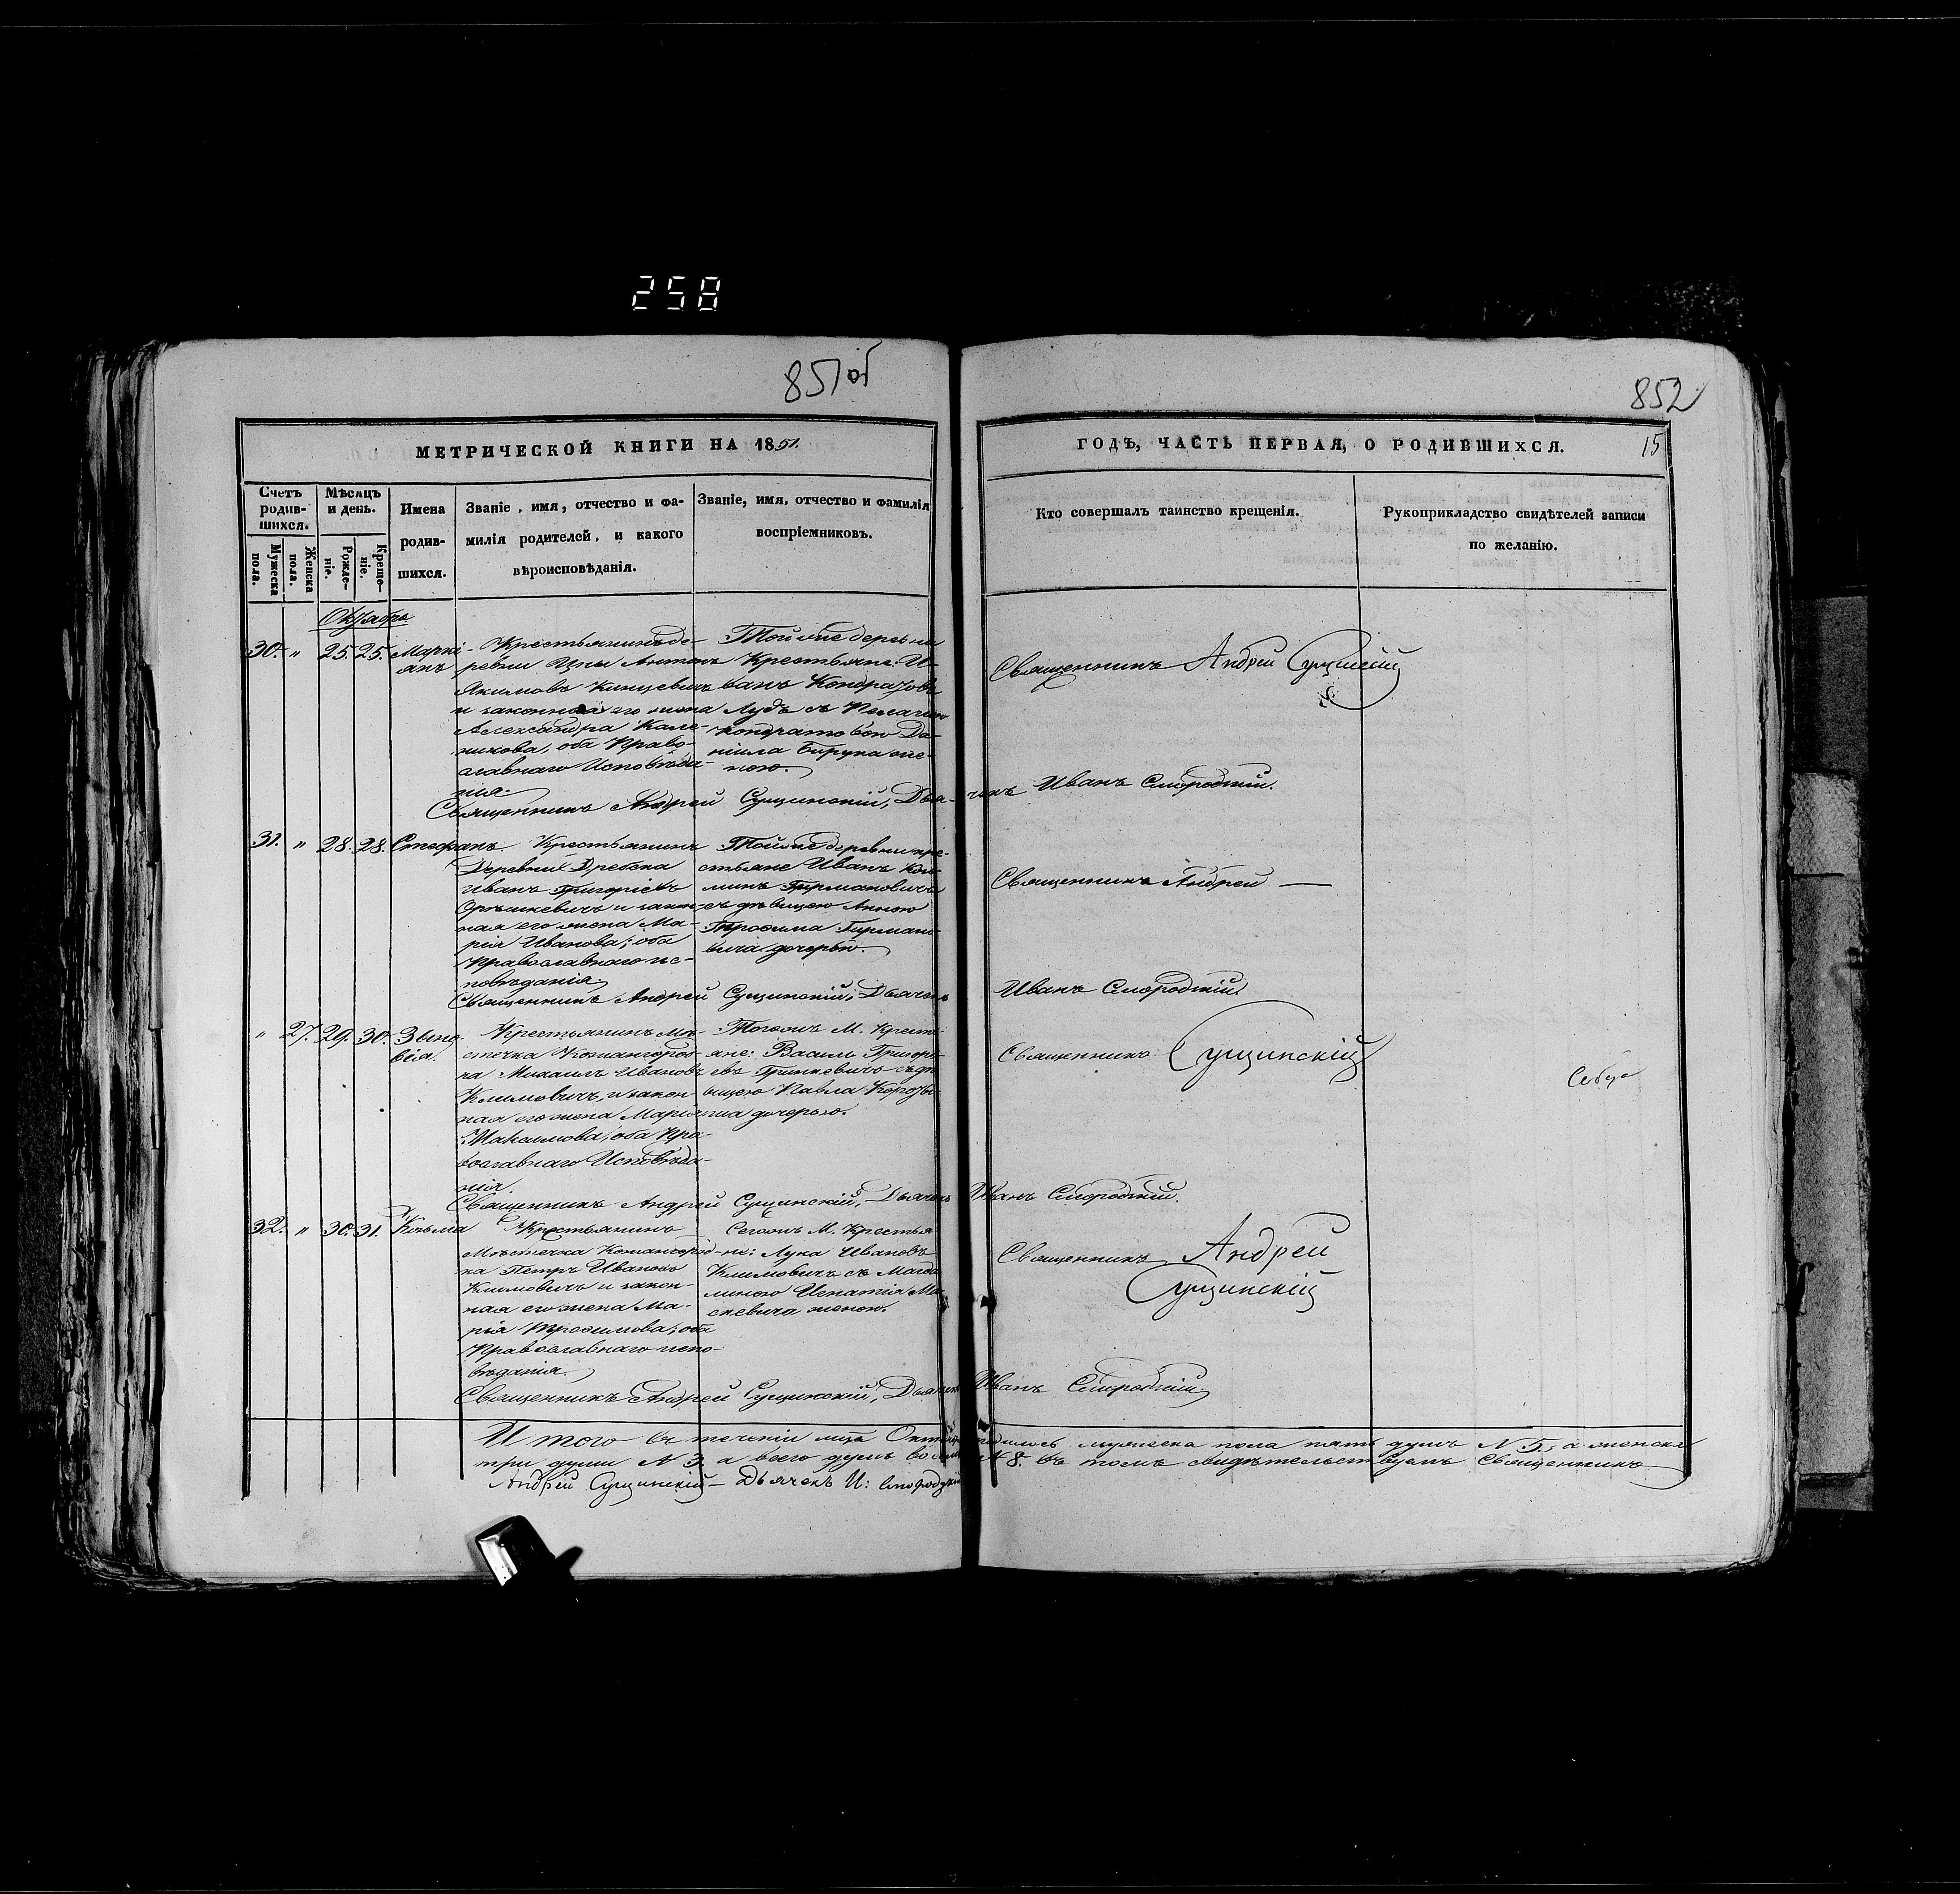 258
851об
852
МЕТРИЧЕСКОЙ КНИГИ НА 1851.
ГОДЪ, ЧАСТЬ ПЕРВАЯ, О РОДИВШИХСЯ. 15
Счетъ родив-шихся.
Мужеска пола.
Женска пола.
Мѣсяцъ и день.
Рожде-ніе.
Креще-ніе.
Имена
родив-
шихся.
Званіе, имя, отчество и фа-
милія родителей, и какого
вѣроисповѣданія.
Званіе, имя, отчество и фамилія
воспріемниковъ.
Кто совершалъ таинство крещенія.
Рукоприкладство свидѣтелей записи
по желанію.
Октябрь
30. " 25. 25. Маркі-
анъ
Крестьянинъ де-
ревни Цны Антонъ
Якимовъ Кинцевичъ
и законная его жена
Александра
оба Право-
славнаго Исповѣда-
нія.
Той же деревни
Крестьяне: И-
ванъ Кондратовъ
Лудъ съ Пелагіею
Кондратовою Да-
ніила Бирука же-
ною.
Священникъ Андрей Сущинскій
Священникъ Андрей Сущинскій, Дья-чекъ Иванъ Смородскій.
31. " 28. 28. Стефанъ
Крестьянинъ
Деревни Дребска
Иванъ Григоріевъ
Орѣшкевичъ и закон-
ная его жена Ма-
рія Иванова; оба
Православнаго ис-
повѣданія.
Той же деревни кре-
стьяне Иванъ
Гирмановичъ
съ дѣвицею Анною
Гирмано-
вича дочерью.
Священникъ Андрей —
Священникъ Андрей Сущинскій, Дьячекъ Иванъ Смородскій
" 27. 29. 30. Зѣно-
віа.
Крестьянинъ мѣ-
стечка Кожангород-
ка Михаилъ Ивановъ
Климовичъ, и закон-
ная его жена Маріанна
Максимова; оба Пра-
вославнаго Исповѣда-
нія.
Тогожъ М. Кресть-
яне: Василь Григорь-
евъ Гринкевичъ съ дѣ-
вицею Павла
дочерью.
Священникъ Сущинскій
Священникъ Андрей Сущинскій, Дьячекъ Иванъ Смородскій.
32. " 30. 31. Козьма
Крестьянинъ
Мѣстечка Кожангород-
ка Петръ Ивановъ
Климовичъ и закон-
ная его жена Ма-
рія Трофимова; оба
Православнаго испо-
вѣданія.
Сегожъ М. Крестья-
не: Лука Ивановъ
Климовичъ съ Магда-
линою Игнатія
женою.
Священникъ Андрей
Сущинскій
Священникъ Андрей Сущинскій, Дьячекъ Иванъ Смородскій
Итого въ теченіи мца Октября родилось мужеска пола пять душъ N 5, а женска
три души N 3. а всего душъ восемь N 8. въ томъ свидѣтельствуемъ Священникъ
Андрей Сущинскій — Дьячекъ И: Смородскій